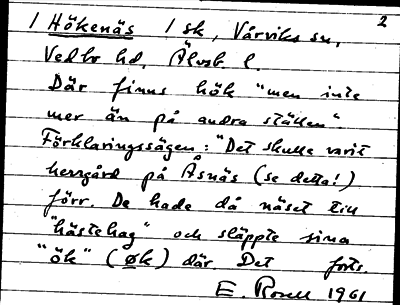 2
/ Hökenäs / sk, Vårviks sn,
Vedbo hd, Älvsb. l.
Där finns hök "men inte
mer än på andra ställen".
Förklaringssägen: "Det skulle varit
herrgård på Åsnäs (se detta!)
förr. De hade då näset till
"hästehag" och släppte sina
"ök" (øk) där. Det forts.
E. Rosell 1961